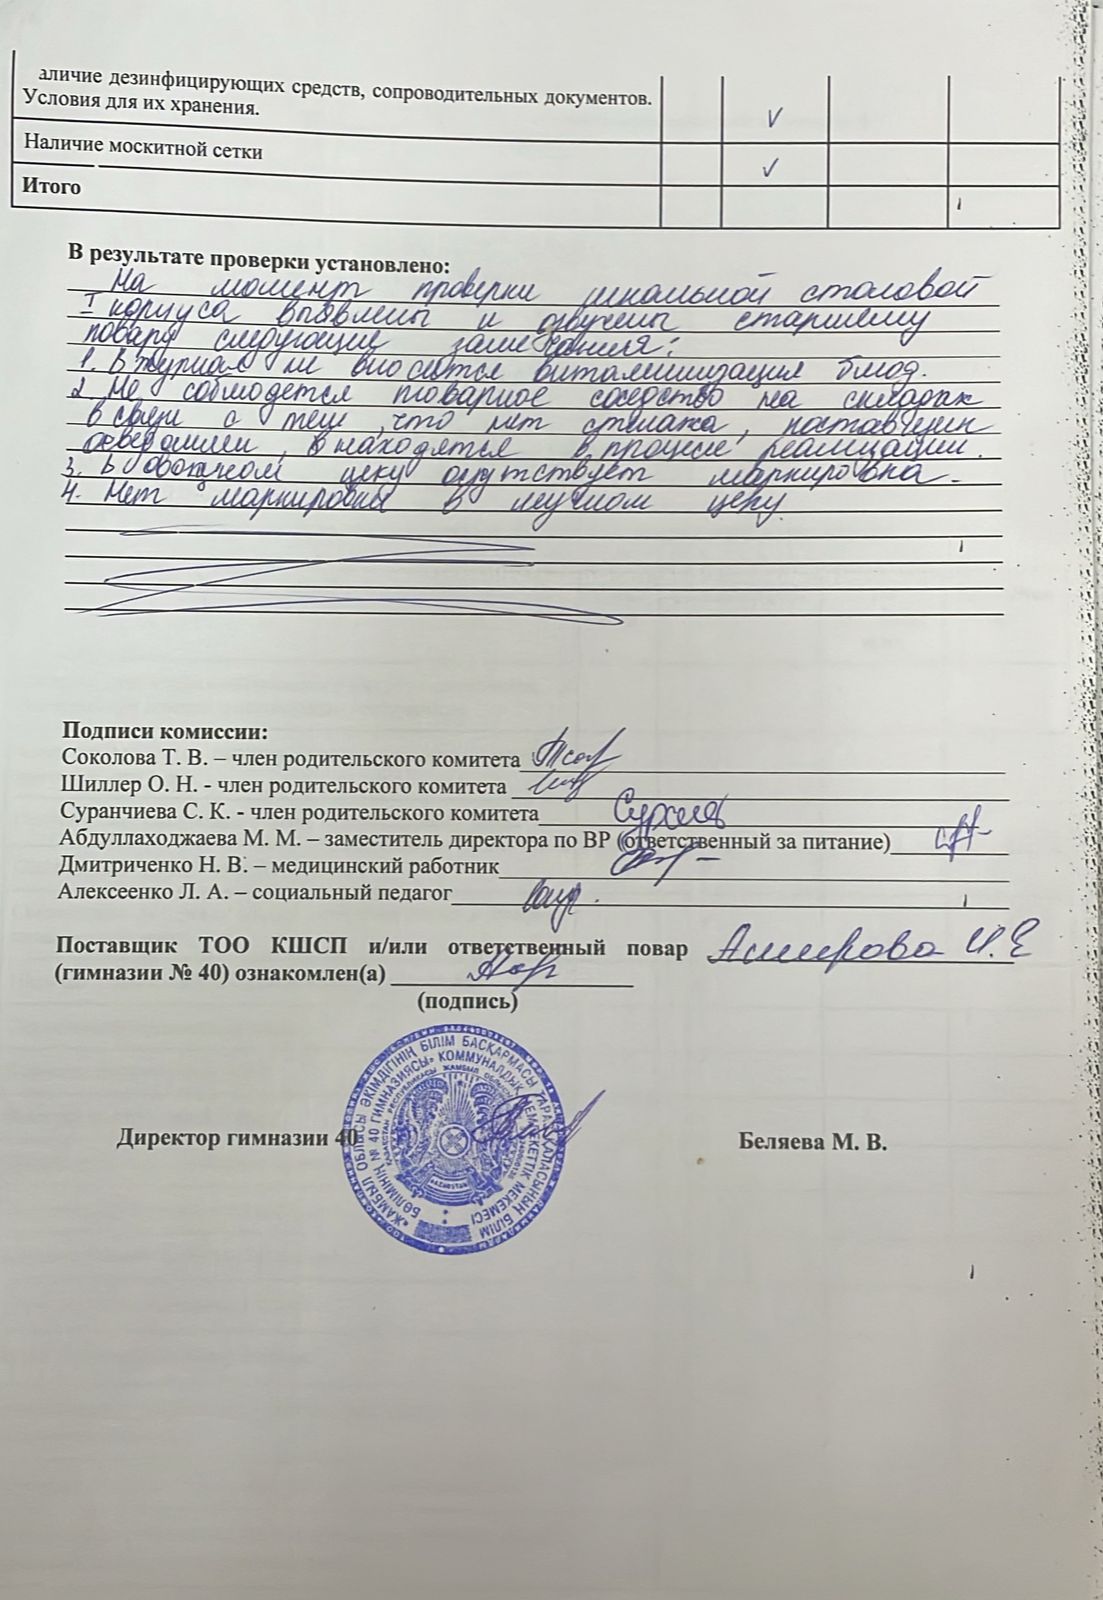 аличие дезинфицирующих средств, сопроводительных документов.
Условия для их хранения.
Наличие москитной сетки
Итого
В результате проверки установлено:
На момент проверки школьной столовой
I корпуса выявлены и озвучены старшему
повару следующие замечания:
1. В журнал не вносится витаминизация блюд.
2. Не соблюдется товарное соседство на складах
в связи с тем, что нет стелажа, поставщик
осведомлен, в находятся в процессе реализации.
3. В овощном цеху отсутствует маркировка.
4. Нет маркировки в мучном цеху.
Подписи комиссии:
Соколова Т. В. – член родительского комитета
Шиллер О. Н. - член родительского комитета
Суранчиева С. К. - член родительского комитета
Абдуллаходжаева М. М. – заместитель директора по ВР (ответственный за питание)
Дмитриченко Н. В. – медицинский работник
Алексеенко Л. А. – социальный педагог
Поставщик ТОО КШСП и/или ответственный повар Аширова И.Е
(гимназии № 40) ознакомлен(а)
(подпись)
«ЖАМБЫЛ ОБЛЫСЫ ӘКІМДІГІНІҢ БІЛІМ БАСҚАРМАСЫ ТАРАЗ ҚАЛАСЫНЫҢ БІЛІМ
БӨЛІМІНІҢ № 40 ГИМНАЗИЯСЫ» КОММУНАЛДЫҚ МЕМЛЕКЕТТІК МЕКЕМЕСІ
Директор гимназии 40 Беляева М. В.